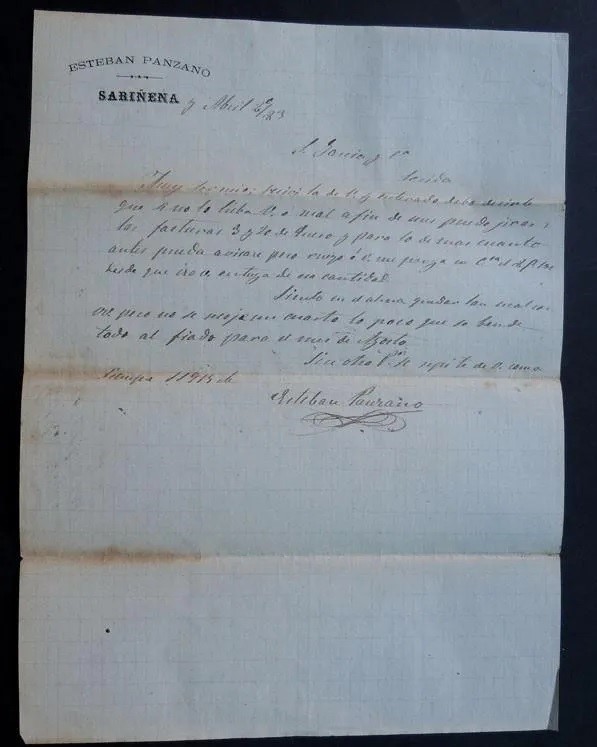 ESTEBAN PANZANO
SARIÑENA y Abril 83
S. Garcia y Cª
Lerida
Muy Sr mio: recivi la de V. y enterado debo decirle
que si no lo lleba V. a mal a fin de mes puede jirar
las facturas 3 y 20 de Enero y para lo demas cuanto
antes pueda avisare pero ruego á V. me ponga en
desde que en esa cantidad.
Siento en el alma quedar tan mal con
V. pero no se coje un cuarto lo poco que se bende
todo al fiado para el mes de Agosto
Sin otro se repite de V. como
siempre
Esteban Panzano